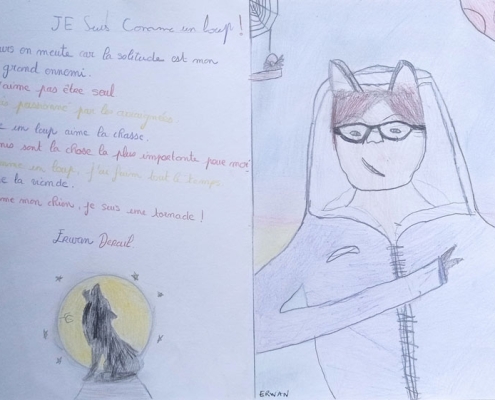 JE Suis Comme un loup !
urs en meute car la solitude est mon
grand ennemi.
'aime pas être seul
passionné par les
un loup aime la chasse.
mis sont la chose la plus importante pour moi
comme un loup, j'ai faim tout le temps
e la viande.
me mon chien, je suis une tornade !
Erwan
ERWAN